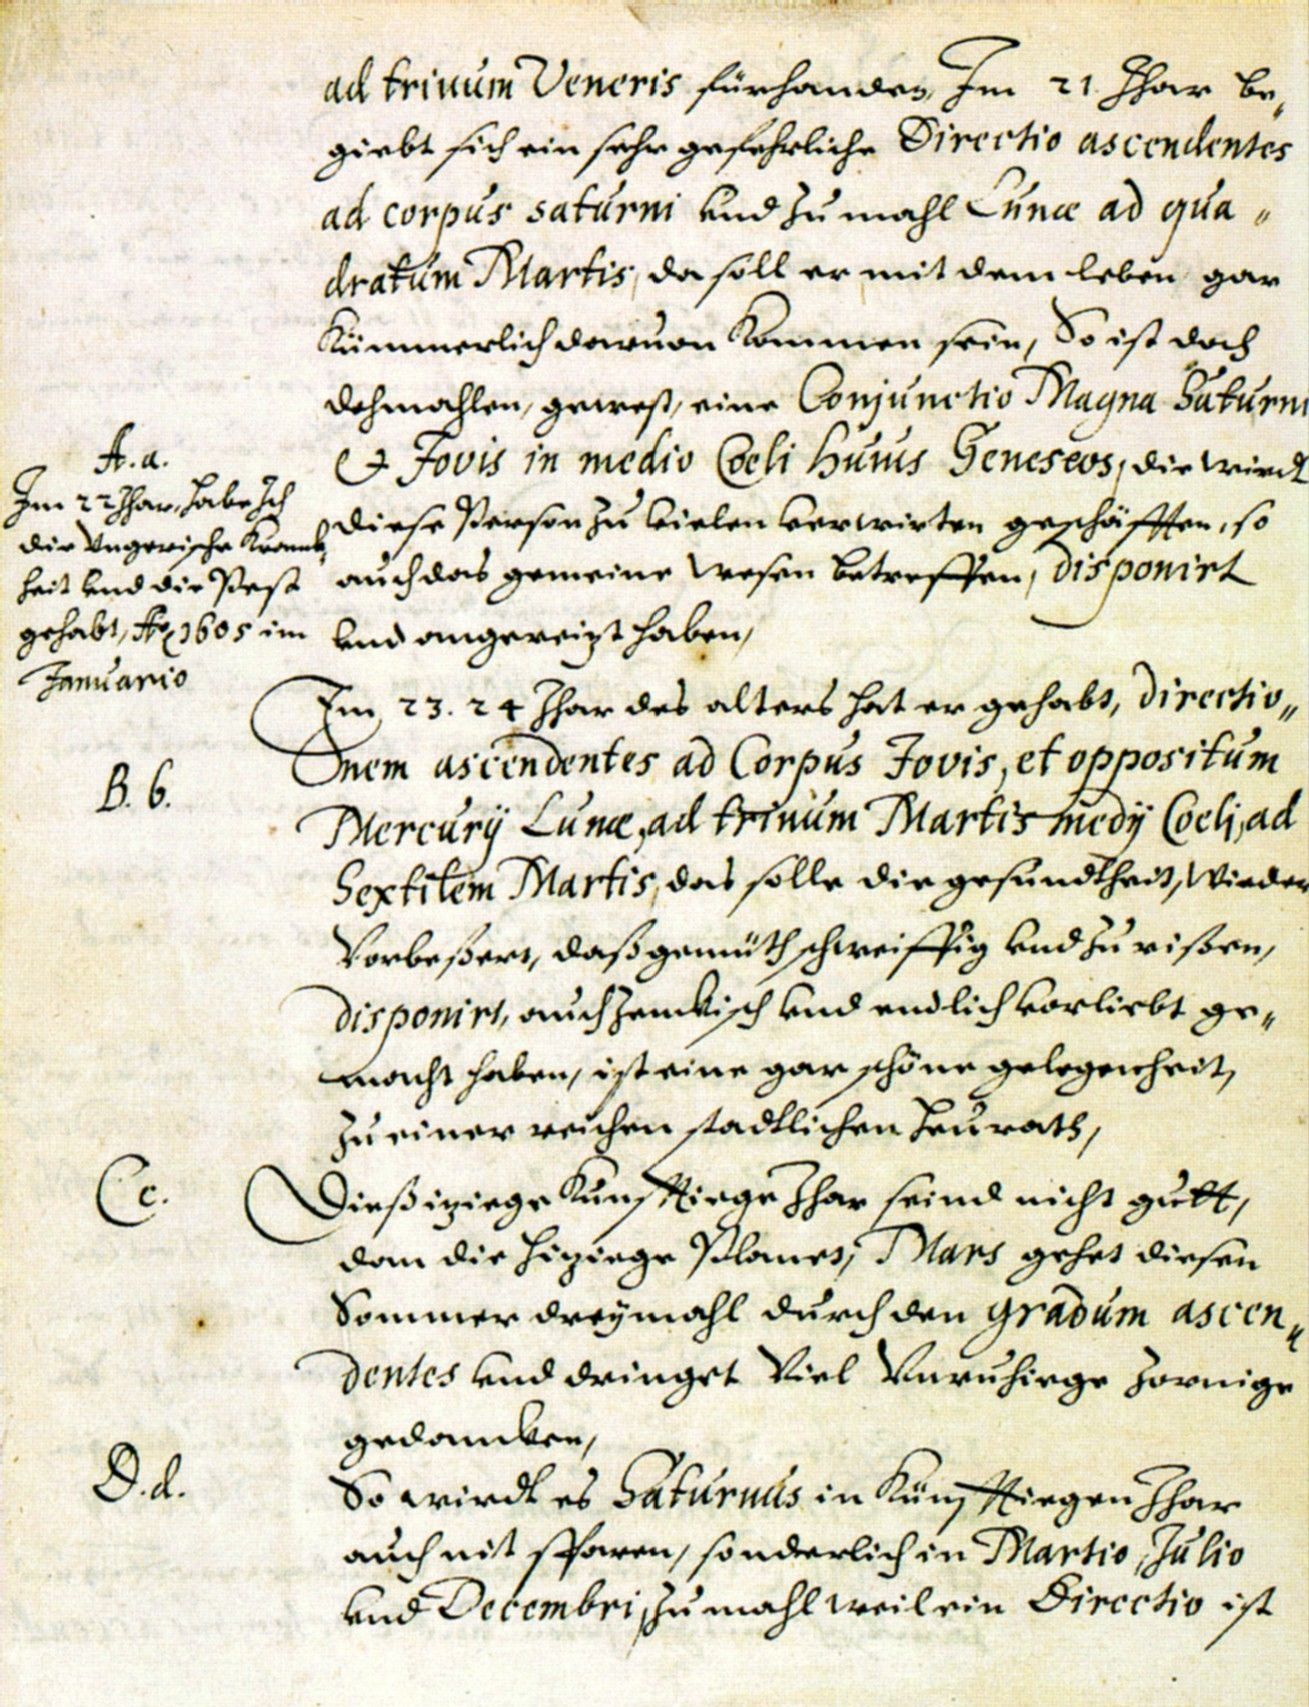 ad trinum Veneris fürhanden, Im 21 Jhar be„
giebt sich ein sehr gefehrliche Directio ascendentes
ad corpus saturni vnd zumahl Lunæ ad qua„
dratum Martis, da soll er mit dem leben gar
Kümmerlich davuon Kommen sein, So ist doch
dehmahlen, gewest, eine Conjunctio Magna Saturni
A. a.
Im 22 Jhar, habe Ich
die Vngerische Kranck„
heit vnd die Pest
gehabt, Ao 1605 im
Januario
et Jovis in medio Coeli huius Geneseos, die wirdt
diese Person zu vielen verwirten geschäfften, so
auch das gemeine wesen betreffen, disponirt
vnd angereizt haben,
Im 23. 24 Jhar des alters hat er gehabt, directio„
B. b.
nem ascendentes ad Corpus Jovis, et oppositum
Mercurij Lunæ, ad trinum Martis medij Coeli, ad
Sextilem Martis, das solle die gesundtheit, wieder
Vorbeßert, daß gemüth schweiffig vnd zu reißen,
disponirt, auch zenckisch vnd endlich vorliebt ge„
macht haben, ist eine gar schöne gelegenheit,
zu einer reichen stadtlichen Heurath,
C c.
Dieß iziege Künfftiege Jhar seind nicht gutt,
dan die hiziege Planet, Mars gehet diesen
Sommer dreymahl durch den gradum ascen„
dentes vnd bringet Viel Vnruhiege zornige
gedancken,
D. d.
So wirdt es Saturnus in Künfftiegen Jhar
auch nit sparen, sonderlich in Martio, Julio
vnd Decembri, zumahl weil ein Directio ist